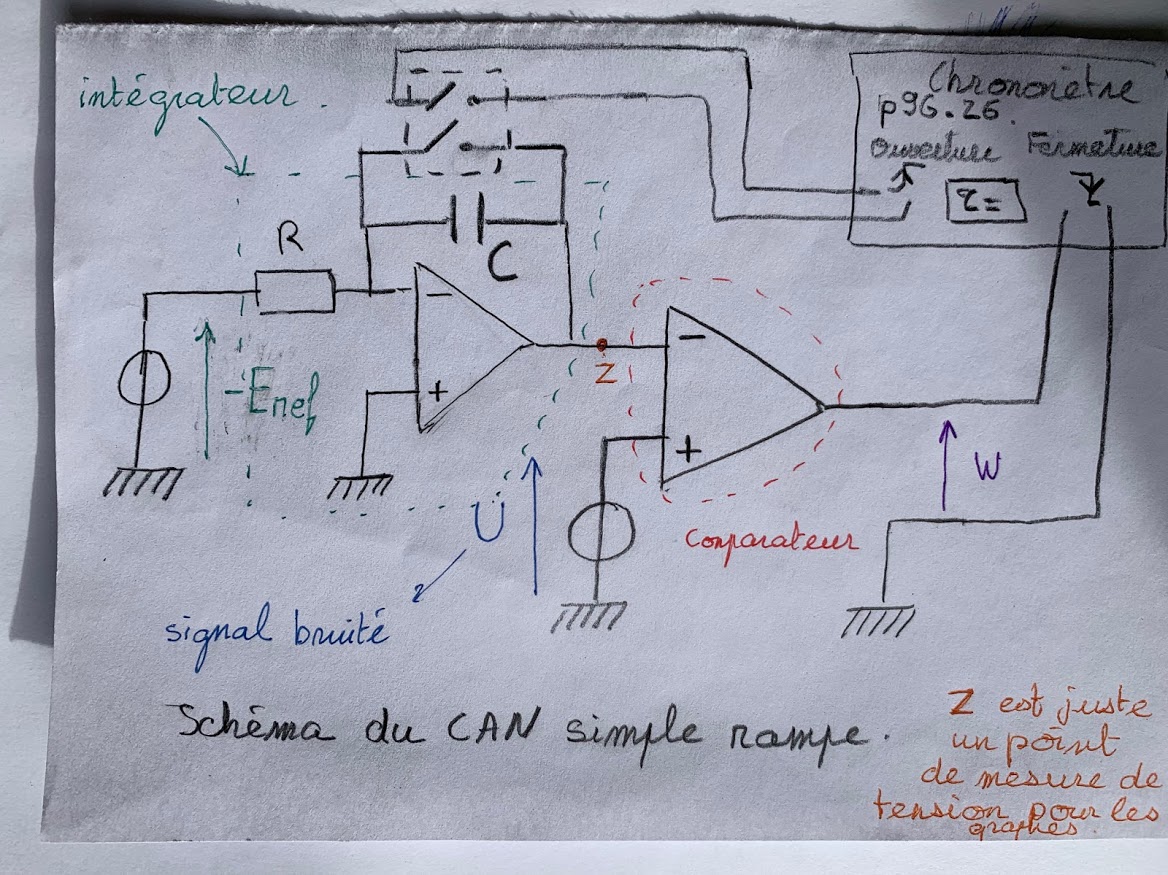 intégrateur.
Chronomètre
p96.26.
Ouverture Fermeture
τ=
R
C
-
+
-Eref
Z
-
+
W
U
comparateur
signal bruité
Schéma du CAN simple rampe.
Z est juste
un point
de mesure de
tension pour les
graphes.